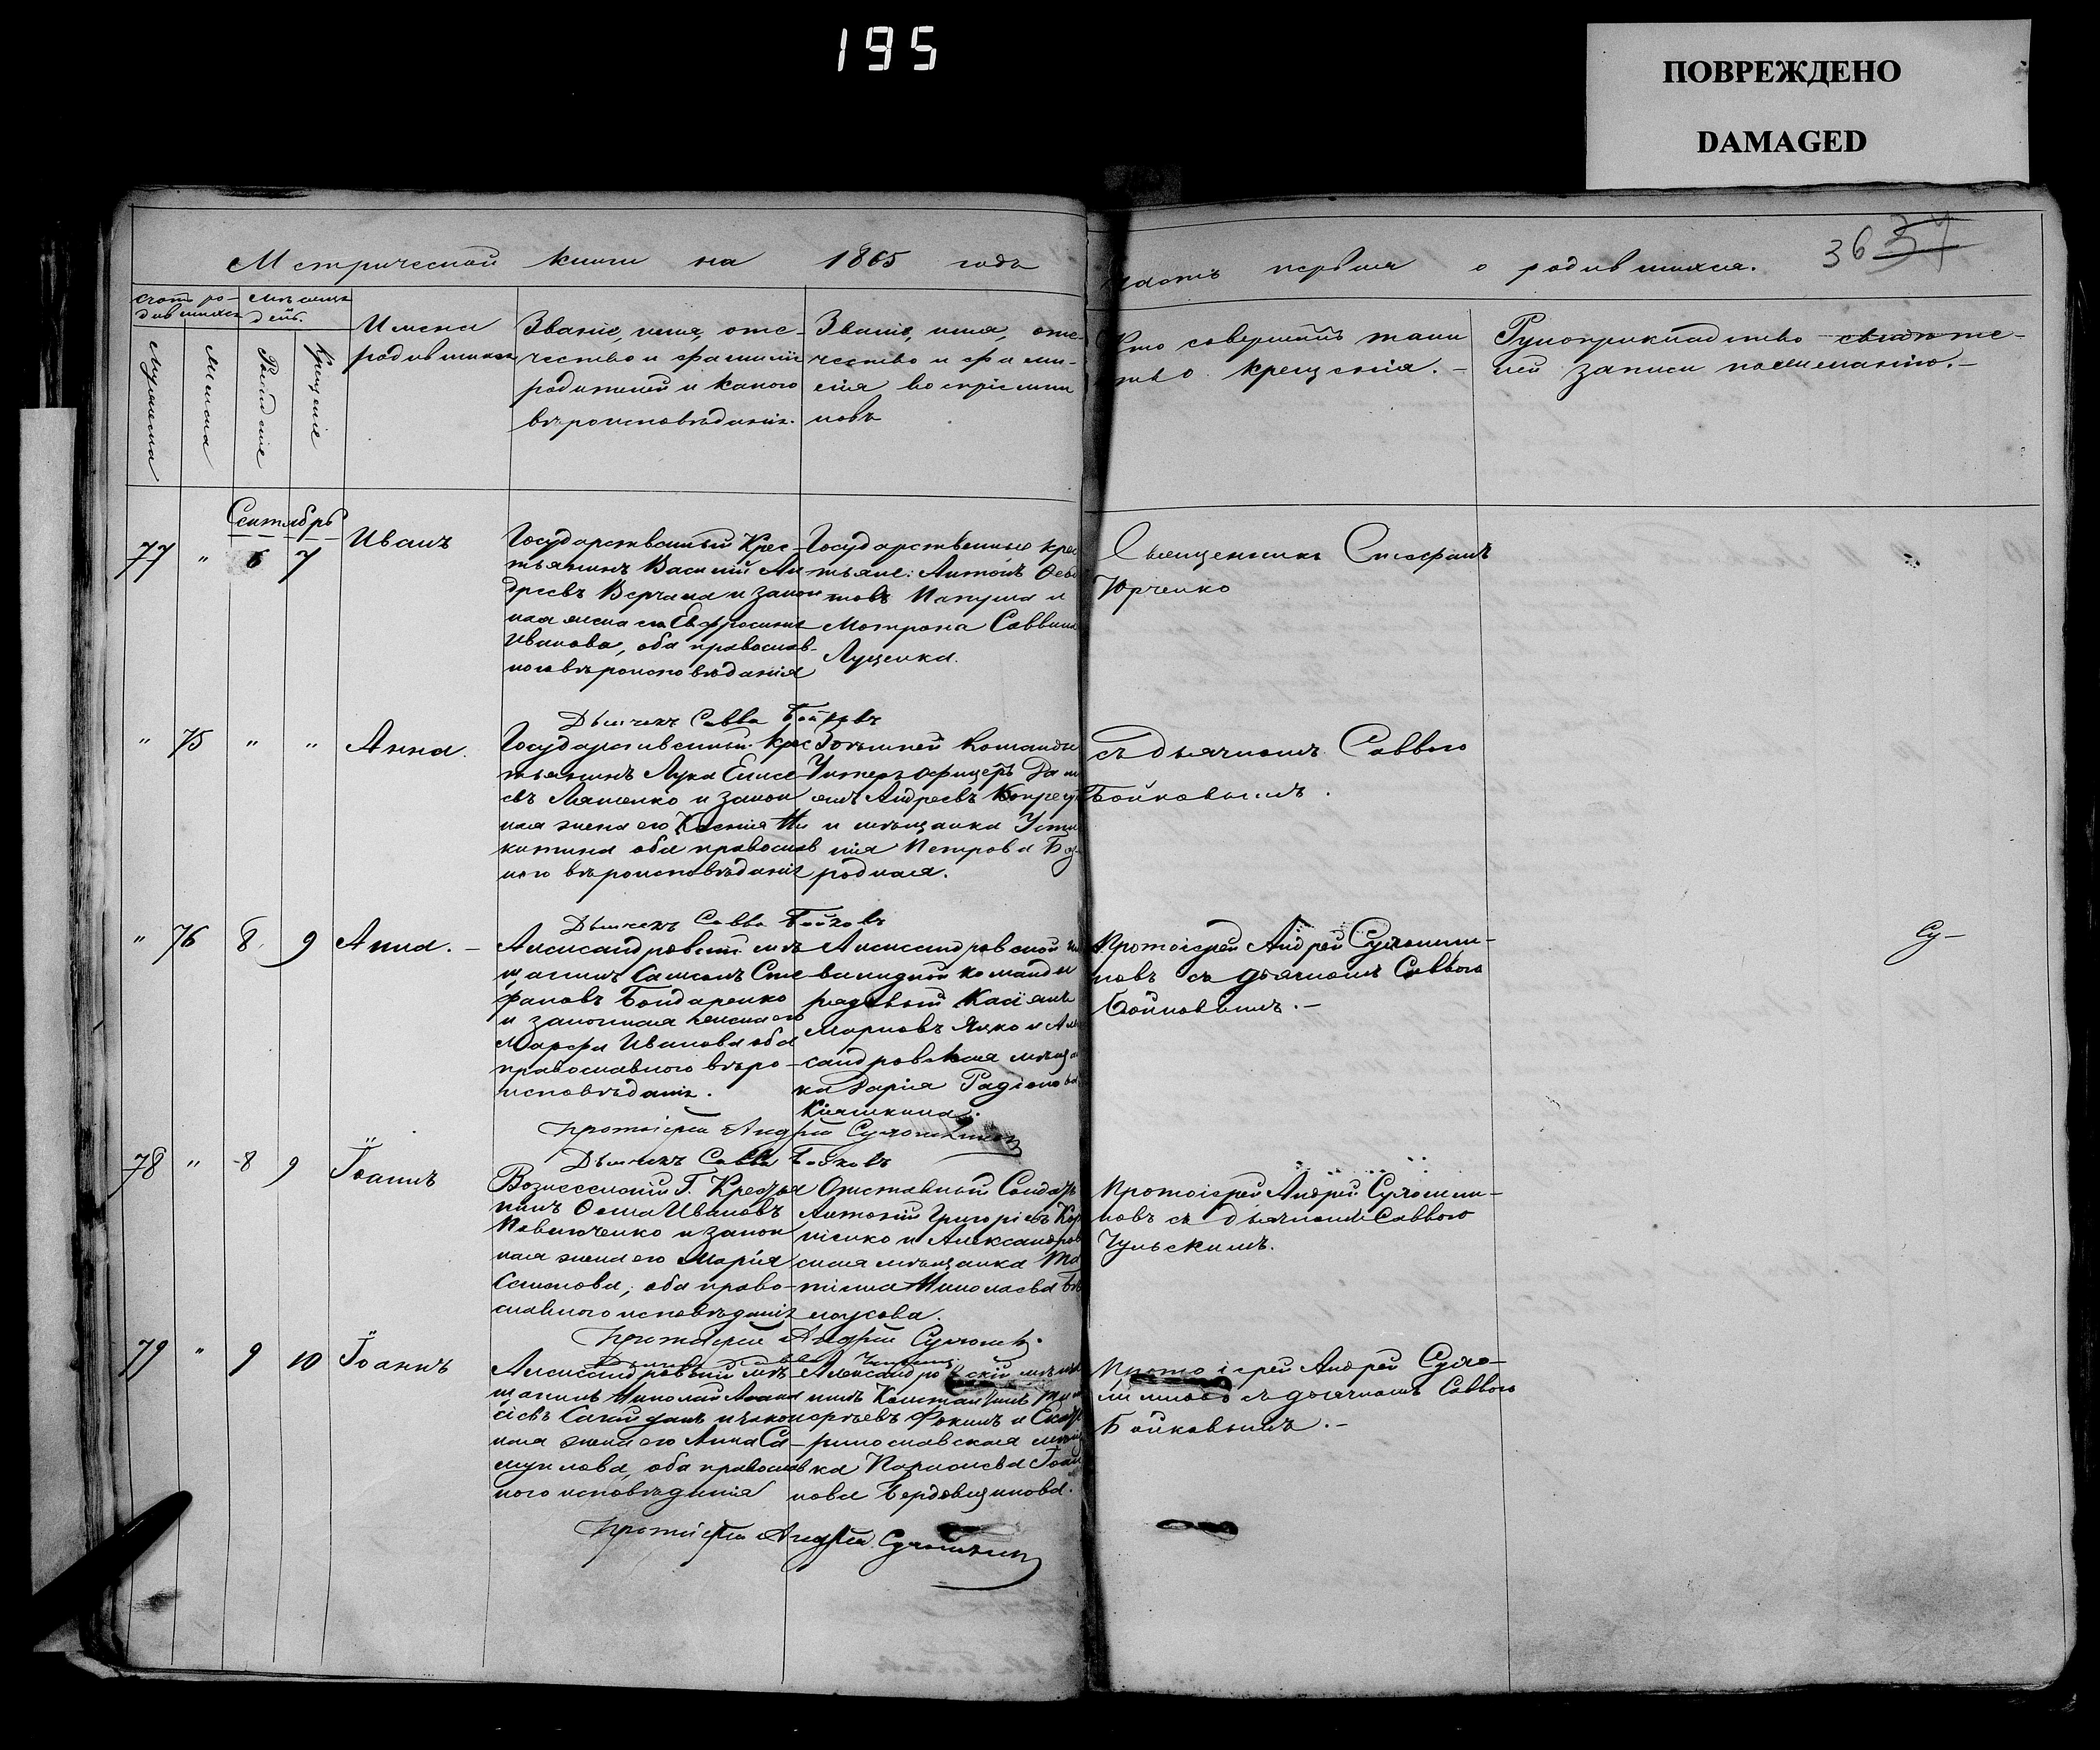 195
ПОВРЕЖДЕНО
DAMAGED
Метрической книги на 1865 годъ
часть первая о родившихся.
36 37
счетъ ро-
дившихся
Мужеска
Женска
мѣсяцъ
день.
Рожденіе
Крещеніе
Имена
родившихся
Званіе, имя, оте-
чество и фамилія
родителей и какого
вѣроисповѣданія.
Званіе, имя, оте-
чество и фами-
лія воспріемни
ковъ
Кто совершалъ таин
ство крещенія.
Рукоприкладство свидѣте-
лей записи по желанію.
Сентябрь
77 " 6 7
Иванъ
Государственный Крес-
тьянинъ Василій Ан
дреевъ Верчака и закон
ная жена его Евфросинія
Иванова, оба православ-
наго вѣроисповѣданія
Государственные крес
тьяне: Антонъ Ѳедо
товъ Папуша и
Мотрона Саввина
Луценка.
Священникъ Стефанъ
Юрченко
Дьячекъ Савва Бойковъ
" 75 " "
Анна.
Государственный крес
тьянинъ Лука Елисе
евъ Ляшенко и закон
ная жена его Ксенія Ни
китина оба православ
наго вѣроисповѣданія
команды
Унтеръ офицеръ Да
Андреевъ
и мѣщанка Усти
нія Петрова Без
родная.
съ дьячкомъ Саввою
Бойковымъ.
Дьячекъ Савва Бойковъ
" 76 8 9
Анна.
Александровскій мѣ
щанинъ Самсонъ Сте
фановъ Бондаренко
и законная жена его
Марфа Иванова оба
православнаго вѣро-
исповѣданія.
Александровской ин
валидной команды
рядовый Касіянъ
Марковъ Яцко и Алек
сандровская мѣщан
ка Дарія Радіонова
Кіяшкина.
Протоіерей Андрей Сулежни-
ковъ съ дьячкомъ Саввою
Бойковымъ.
Су-
Протоіерей Андрей
Дьячекъ Савва Бойковъ
78 " 8 9
Іоаннъ
Вознесенскій Г. Крестья
нинъ Ѳома Ивановъ
и закон
ная жена его Марія
Семенова, оба право-
славнаго исповѣданія
Отставный Солдатъ
Антоній Григоріевъ Кор
ніенко и Александров
ская мѣщанка Та
тіяна Николаева Бѣ
лоусова.
Протоіерей Андрей
ковъ съ дьячкомъ Саввою
Чульскимъ.
Протоіерей Андрей
79 " 9 10
Іоаннъ
Александровскій мѣ-
щанинъ Николай Аѳана
сіевъ и закон
ная жена его Анна Са-
муилова, оба православ
наго исповѣданія
Александровскій мѣща
нинъ Константинъ
Фокинъ и Екате
ринославская мѣщан
ка Іоан
нова Бердовщикова.
Протоіерей Андрей
съ дьячкомъ Саввою
Бойковымъ.
Протоіерей Андрей